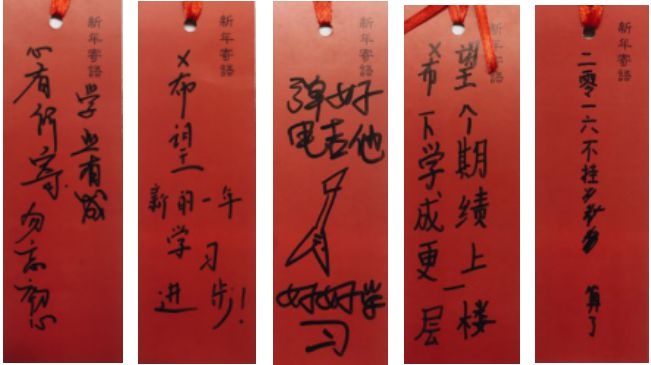 新年寄語
学业有成
心有所寄
勿忘初心
新年寄語
希
新的一年
学习
进步!
新年寄語
弹好
电吉他
好好学
习
新年寄語
希望
下个
学期
成绩
更上
一
层楼
新年寄語
二零一六不挂
算了